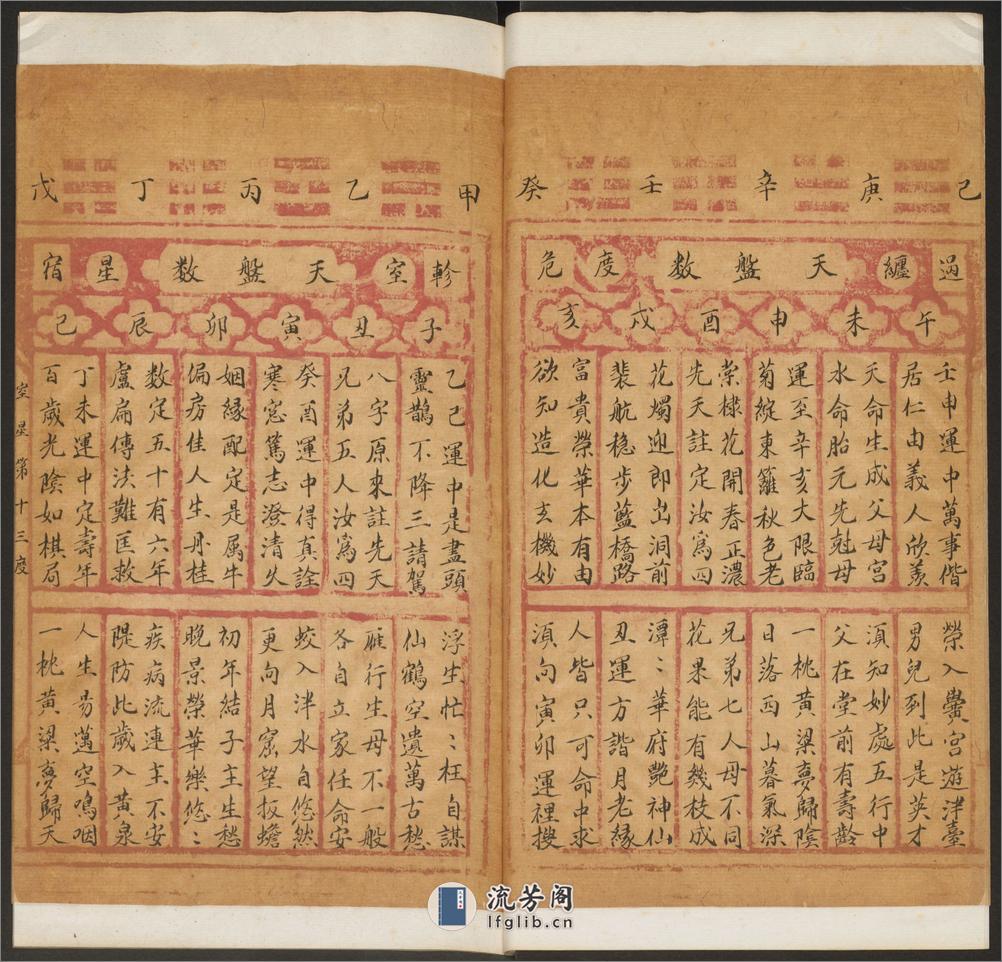 己庚辛壬癸
過纏天盤数度危
午未申酉戌亥
壬申運中萬事偕
居仁由義人欣羨
天命生成父母宮
水命胎元先尅母
運至辛亥大限臨
菊綻東籬秋色老
棠棣花開春正濃
先天註定汝為四
花燭迎郎出洞前
裴航稳步藍橋路
富貴榮華本有由
欲知造化玄機妙
榮入黌宮遊泮臺
男兒到此是英才
湏知妙處五行中
父在堂前有壽齡
一桃黃梁夢歸陰
日落西山暮氣深
兄弟七人母不同
花果能有幾枝成
潭〻華府艶神仙
丑運方諧月老緣
人皆只可命中求
湏向寅卯運裡搜
甲乙丙丁戊
軫室天盤数星宿
子丑寅卯辰巳
乙巳運中是盡頭
靈鵲不降三請駕
八字原來註先天
兄弟五人汝為四
癸酉運中得真詮
寒窓篤志澄清久
姻緣配定是属牛
偏房佳人生丹桂
数定五十有六年
盧扁傳法難匡救
丁未運中定壽年
百歲光陰如棋局
浮生忙〻枉自謀
仙鶴空遺萬古愁
雁行生母不一般
各自立家任命安
蛟入泮水自悠然
更向月窟望扳蟾
初年結子主生愁
晚景榮華樂悠〻
疾病流連主不安
隄防此歲入黃泉
人生易邁空鳴咽
一桃黃梁夢歸天
室星第十三度
流芳阁
lfglib.cn